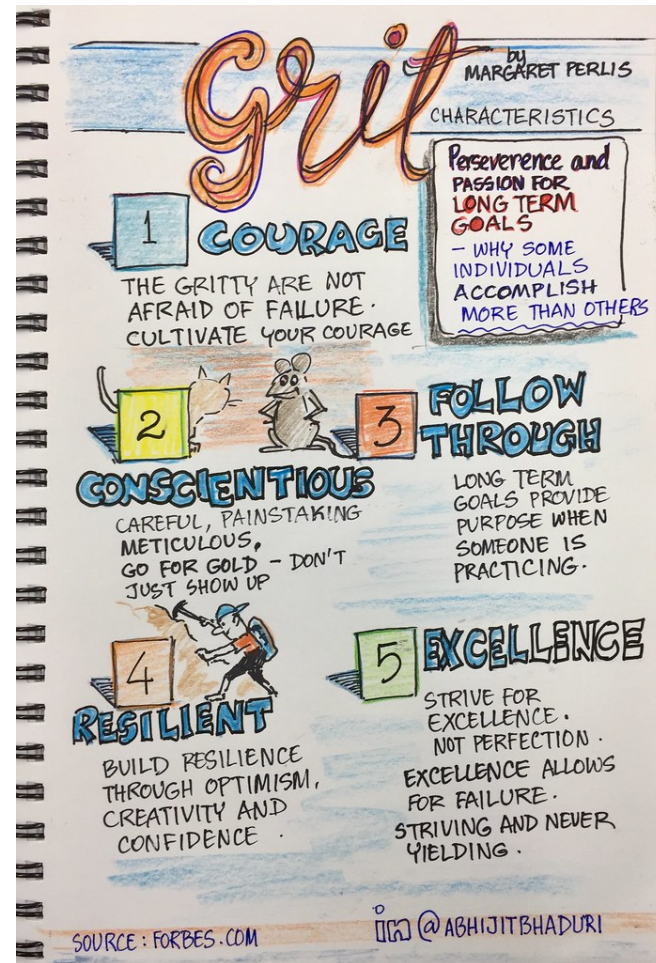 grit
by
MARGARET PERLIS
CHARACTERISTICS
Perseverence and
PASSION FOR
LONG TERM
GOALS
– WHY SOME
INDIVIDUALS
ACCOMPLISH
MORE THAN OTHERS
1 COURAGE
THE GRITTY ARE NOT
AFRAID OF FAILURE.
CULTIVATE YOUR COURAGE
2
CONSCIENTIOUS
CAREFUL, PAINSTAKING
METICULOUS,
GO FOR GOLD – DON'T
JUST SHOW UP
3 FOLLOW
THROUGH
LONG TERM
GOALS PROVIDE
PURPOSE WHEN
SOMEONE IS
PRACTICING.
4
RESILIENT
BUILD RESILIENCE
THROUGH OPTIMISM,
CREATIVITY AND
CONFIDENCE.
5 EXCELLENCE
STRIVE FOR
EXCELLENCE.
NOT PERFECTION.
EXCELLENCE ALLOWS
FOR FAILURE.
STRIVING AND NEVER
YIELDING.
SOURCE: FORBES.COM
in @ABHIJITBHADURI